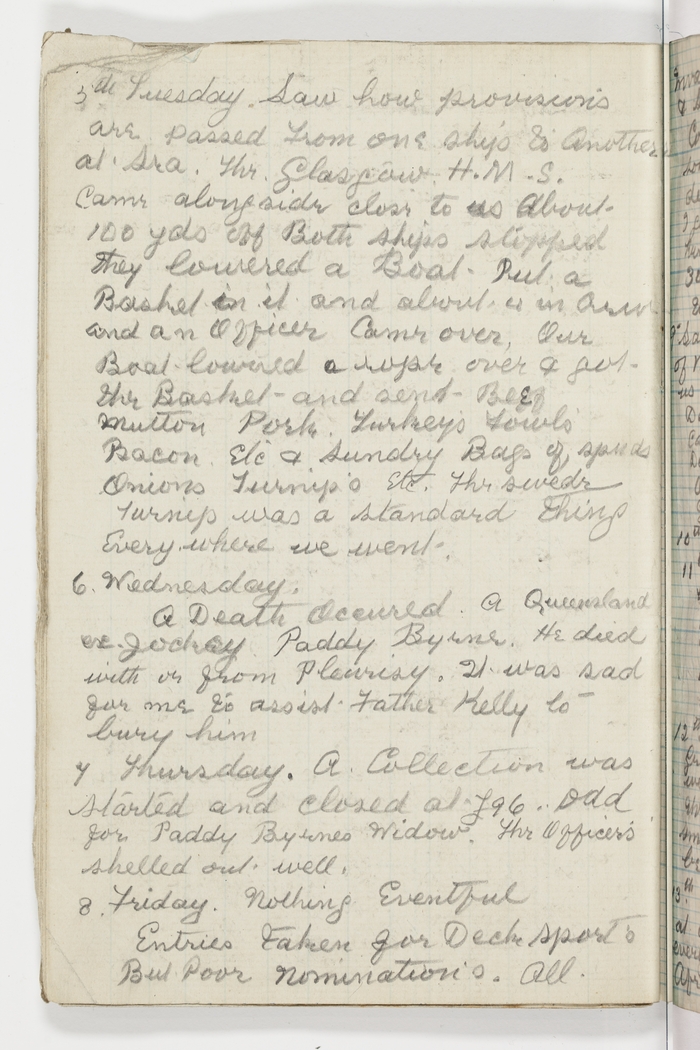 5th Tuesday. Saw how provisions
are passed from one ship to Another
at Sea. The Glasgow H.M.S.
Came alongside close to us About
100 yds off Both ships stopped
They lowered a Boat. Put a
Basket in it and about in
and an Officer Came over, Our
Boat lowered a rope over & got
the Basket and sent Beef
Mutton Pork. Turkey's Fowls
Bacon Etc & Sundry Bags of spuds
Onions Turnip's Etc. The swede
Turnip was a standard Thing
Every where we went.
6. Wednesday.
A Death Occured. A Queensland
ex. Jockey Paddy Byrne. He died
with or from Pleurisy. It was sad
for me to assist Father Kelly to
bury him
7 Thursday. A Collection was
started and closed at £96. Odd
for Paddy Byrnes Widow. The Officer's
shelled out well.
8. Friday. Nothing Eventful
Entries Taken for Deck sport's
But Poor nomination's. All.